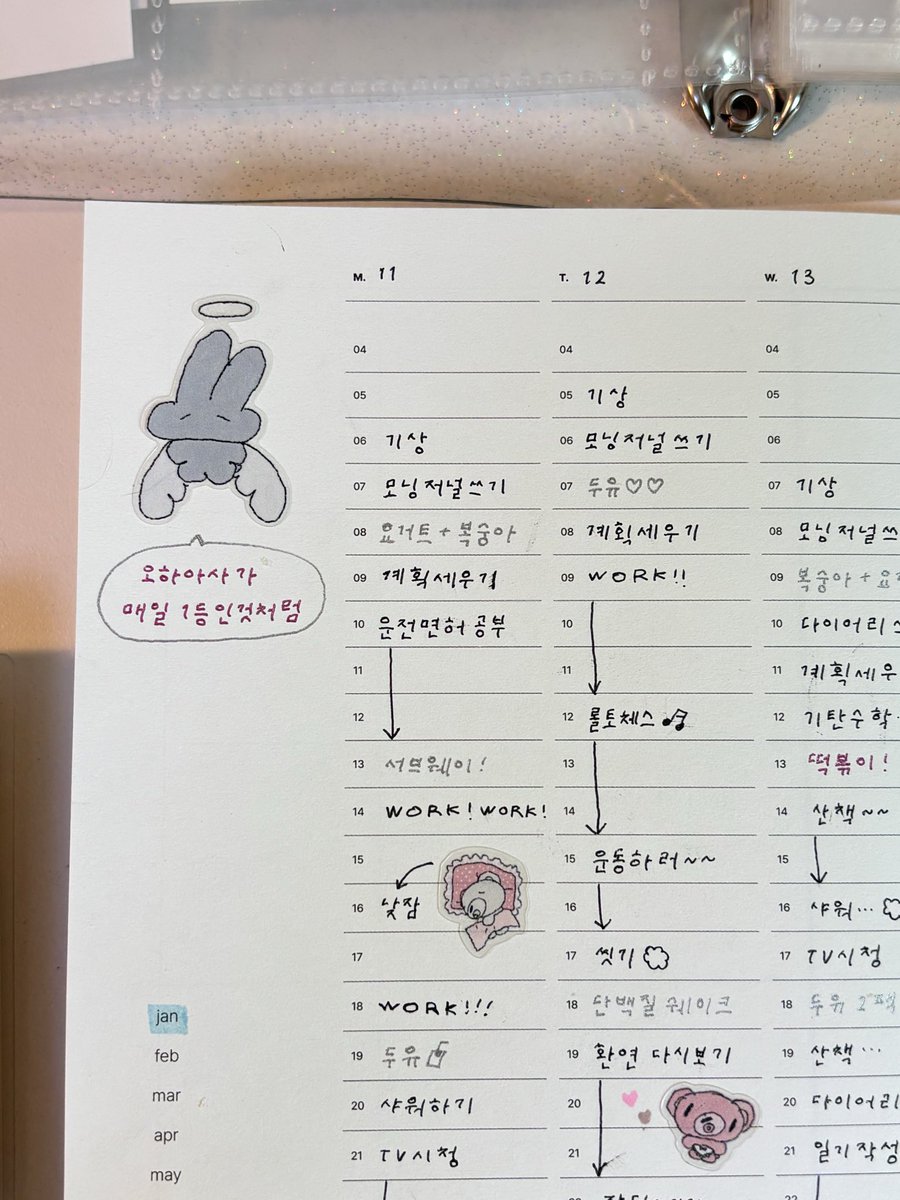 M. 11
04
05
06 기상
07 모닝저널쓰기
08 요거트 + 복숭아
09 계획세우기
10 운전면허 공부
11
12
13 서브웨이!
14 WORK! WORK!
15
16 낮잠
17
18 WORK!!!
19 두유
20 샤워하기
21 TV시청
T. 12
04
05 기상
06 모닝저널 쓰기
07 두유♡♡
08 계획세우기
09 WORK!!
10
11
12 롤토체스
13
14
15 운동하러~~
16
17 씻기
18 단백질 쉐이크
19 환연 다시보기
20
21
W. 13
04
05
06
07 기상
08 모닝저널쓰
09 복숭아 + 요
10 다이어리
11 계획세우
12 기탄수학
13 떡볶이!
14 산책~~
15
16 샤워...
17 TV시청
18 두유 2팩
19 산책...
20 다이어리
21 일기작성
22
오하아사가
매일 1등인것처럼
jan
feb
mar
apr
may